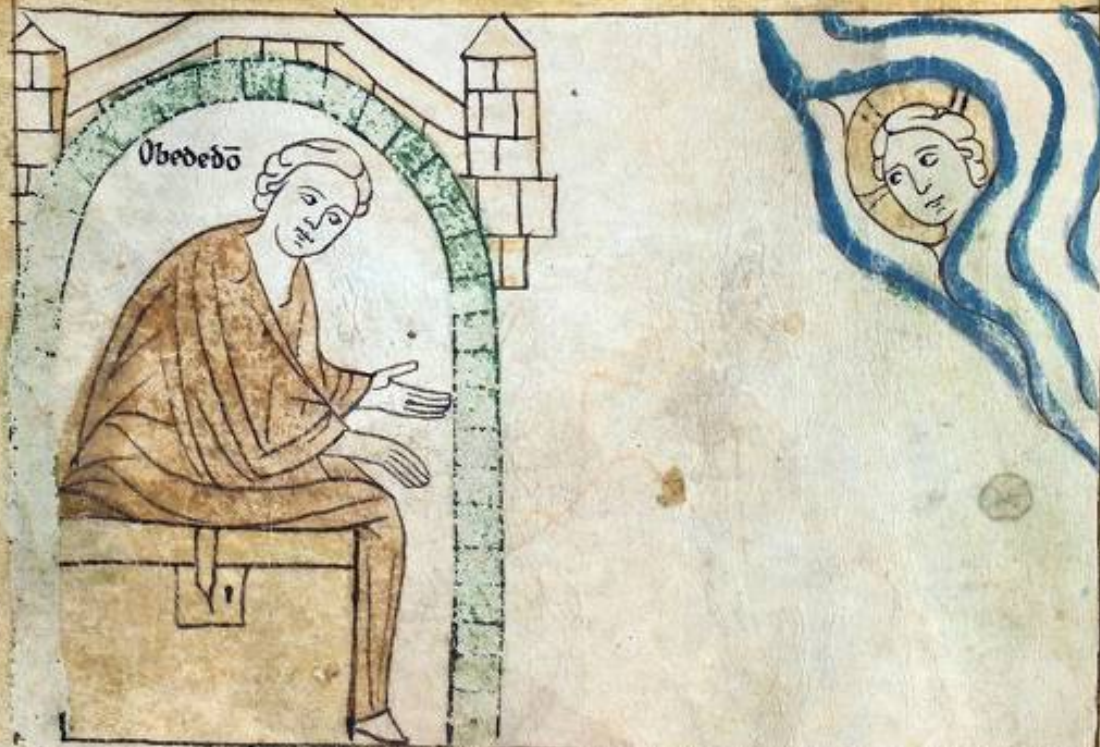 Obededō